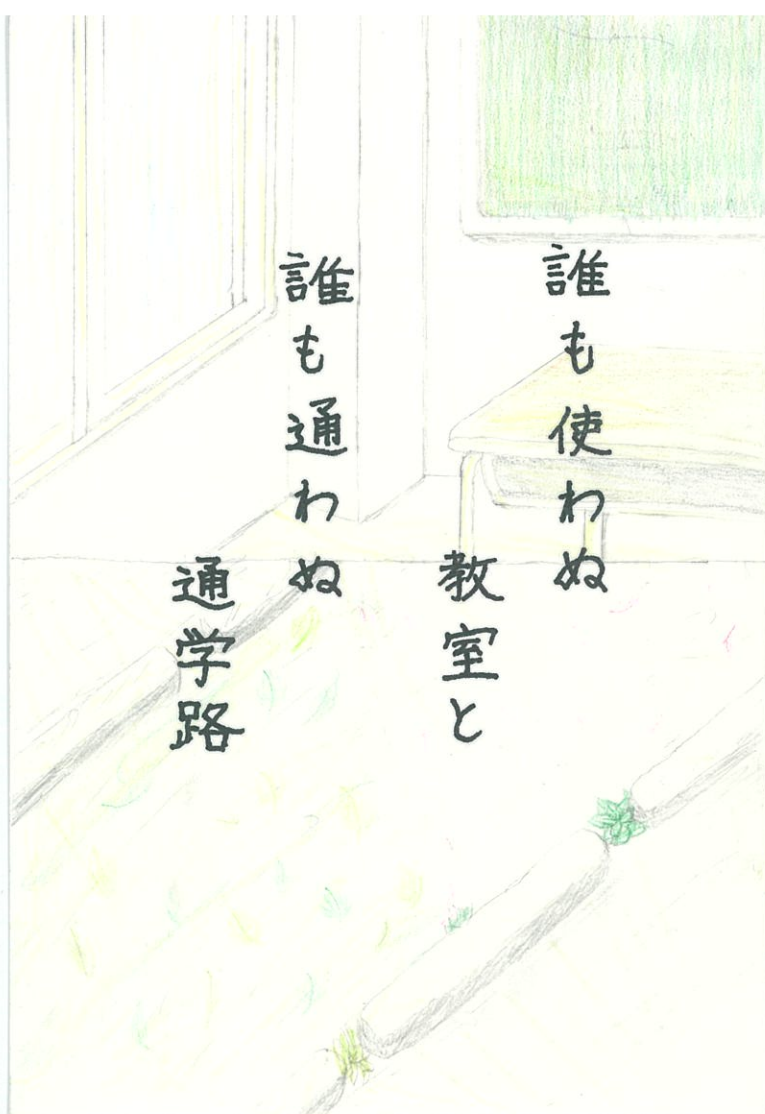 誰も使わぬ
教室と
誰も通わぬ
通学路